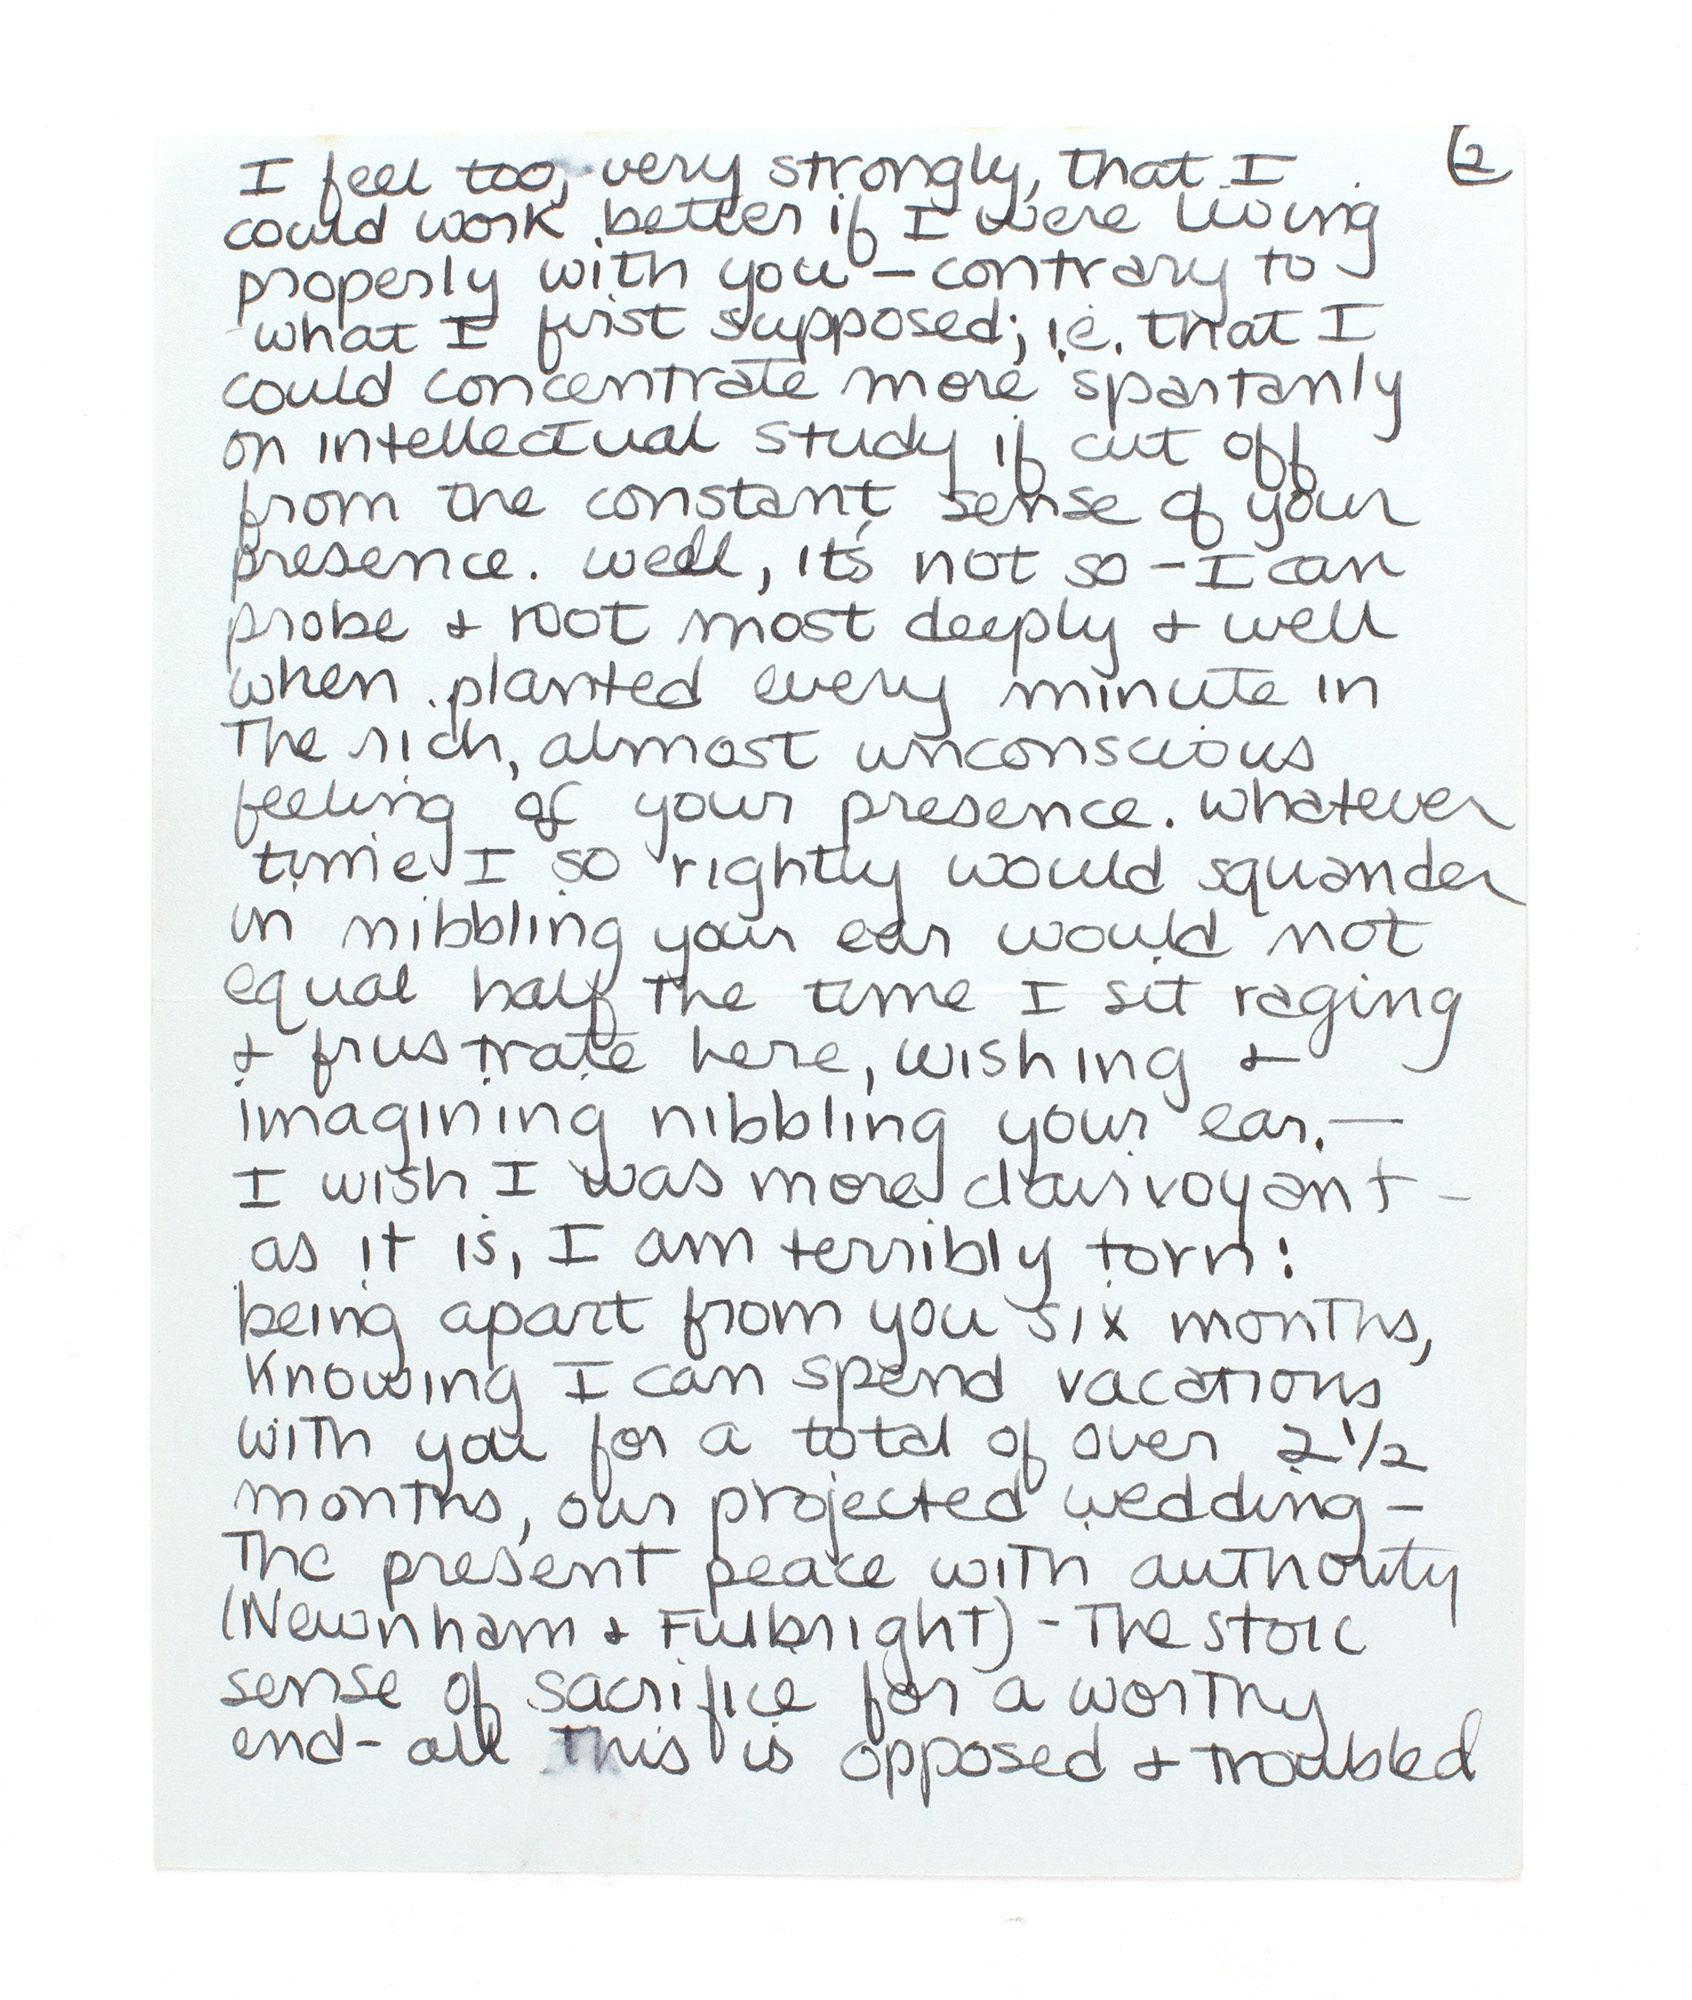 2
I feel too, very strongly, that I
could work better if I were living
properly with you – contrary to
what I first supposed; i.e. that I
could concentrate more spartanly
on intellectual study if cut off
from the constant sense of your
presence. well, it's not so – I can
probe & root most deeply & well
when planted every minute in
the rich, almost unconscious
feeling of your presence. whatever
time I so rightly would squander
in nibbling your ear would not
equal half the time I sit raging
& frustrate here, wishing &
imagining nibbling your ear. —
I wish I was more clairvoyant –
as it is, I am terribly torn:
being apart from you six months,
knowing I can spend vacations
with you for a total of over 2 1/2
months, our projected wedding –
the present peace with authority
(Newnham & Fulbright) – the stoic
sense of sacrifice for a worthy
end – all this is opposed & troubled